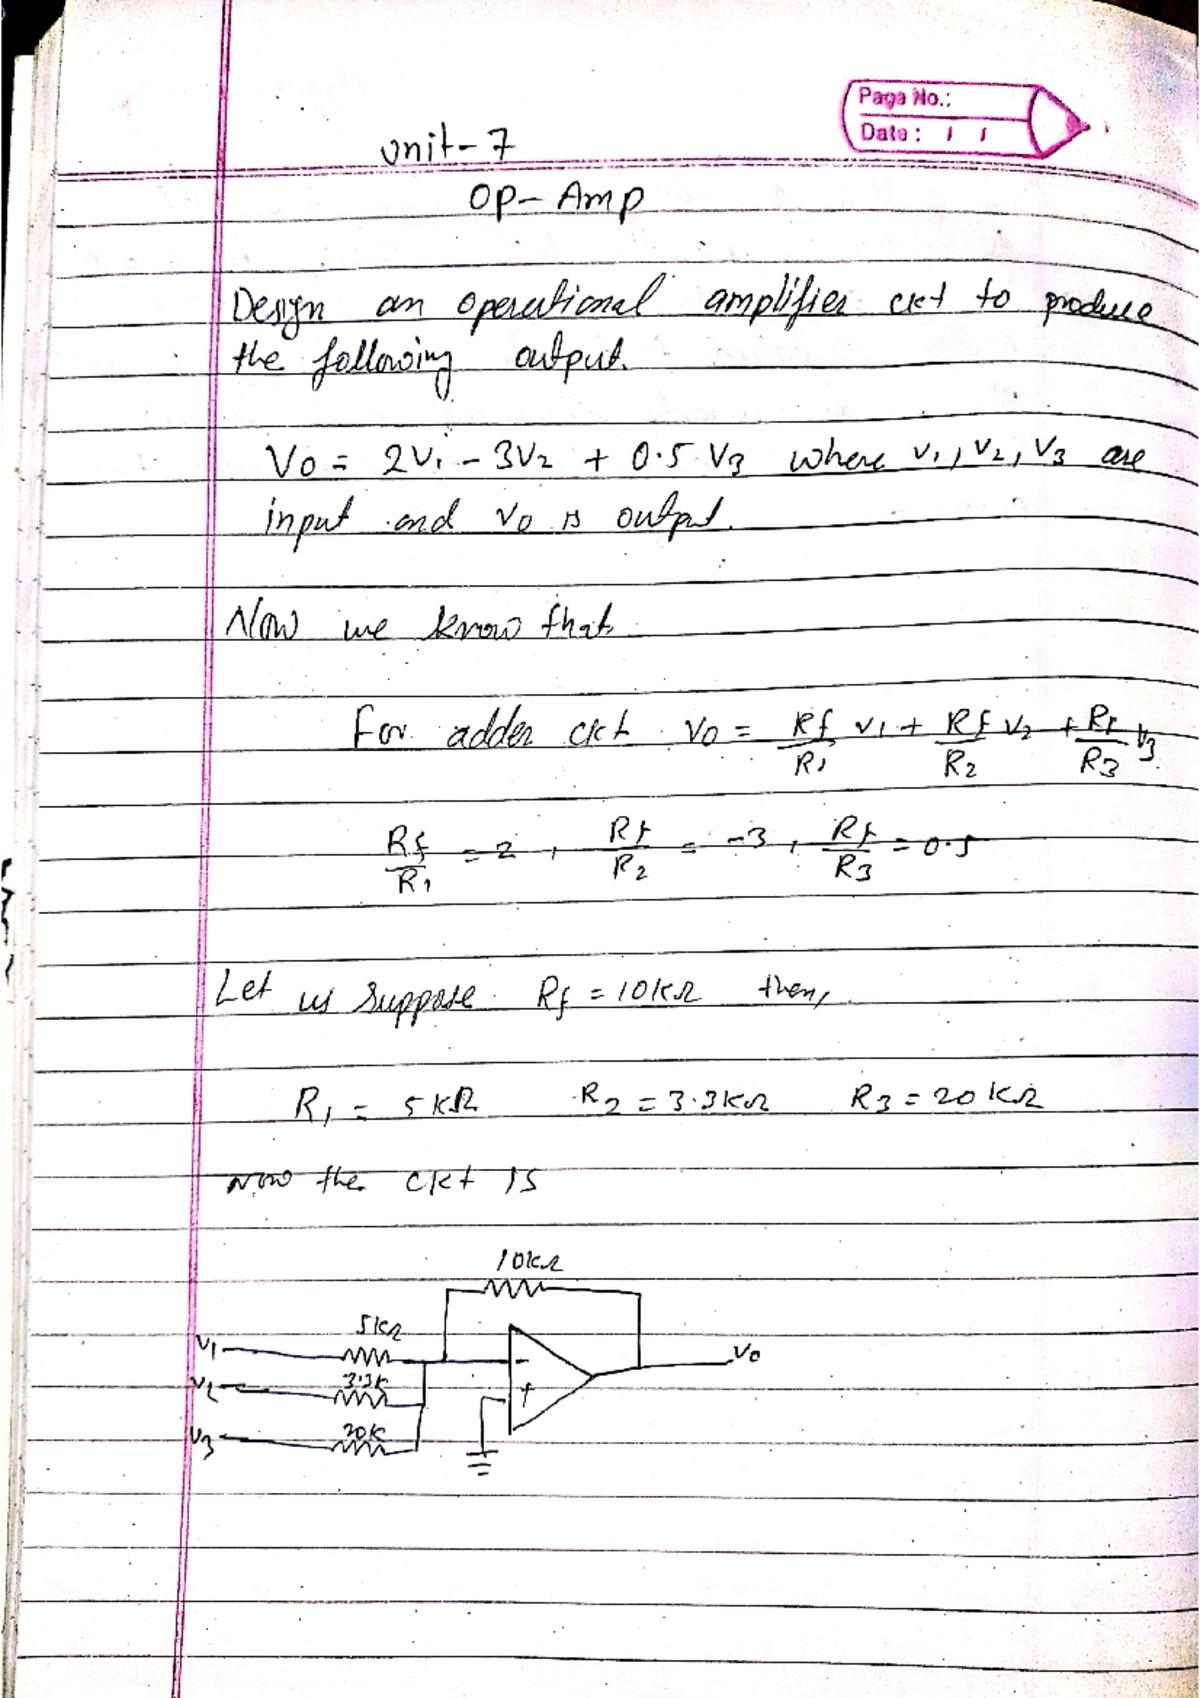 Page No.:
Date: / /
Unit-7
Op-Amp
Design an operational amplifier ckt to produce
the following output.
Vo = 2V1 - 3V2 + 0.5 V3 where V1, V2, V3 are
input and Vo is output.
Now we know that
For adder ckt Vo = Rf/R1 V1 + Rf/R2 V2 + Rf/R3 V3
Rf/R1 = 2, Rf/R2 = -3, Rf/R3 = 0.5
Let us suppose Rf = 10KΩ then,
R1 = 5KΩ R2 = 3.3KΩ R3 = 20KΩ
Now the ckt is
10KΩ
V1 5KΩ - Vo
V2 3.3K +
V3 20K